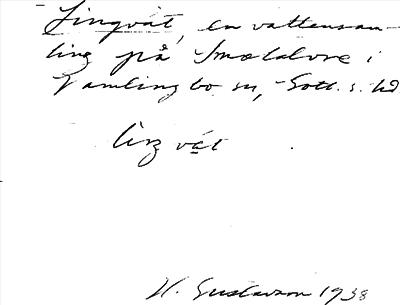 Lingvät, en vattensam-
ling på Smålalvre i
Vamlingbo sn, Gotl. s. hd
liŋ vät
H. Gustavson 1938